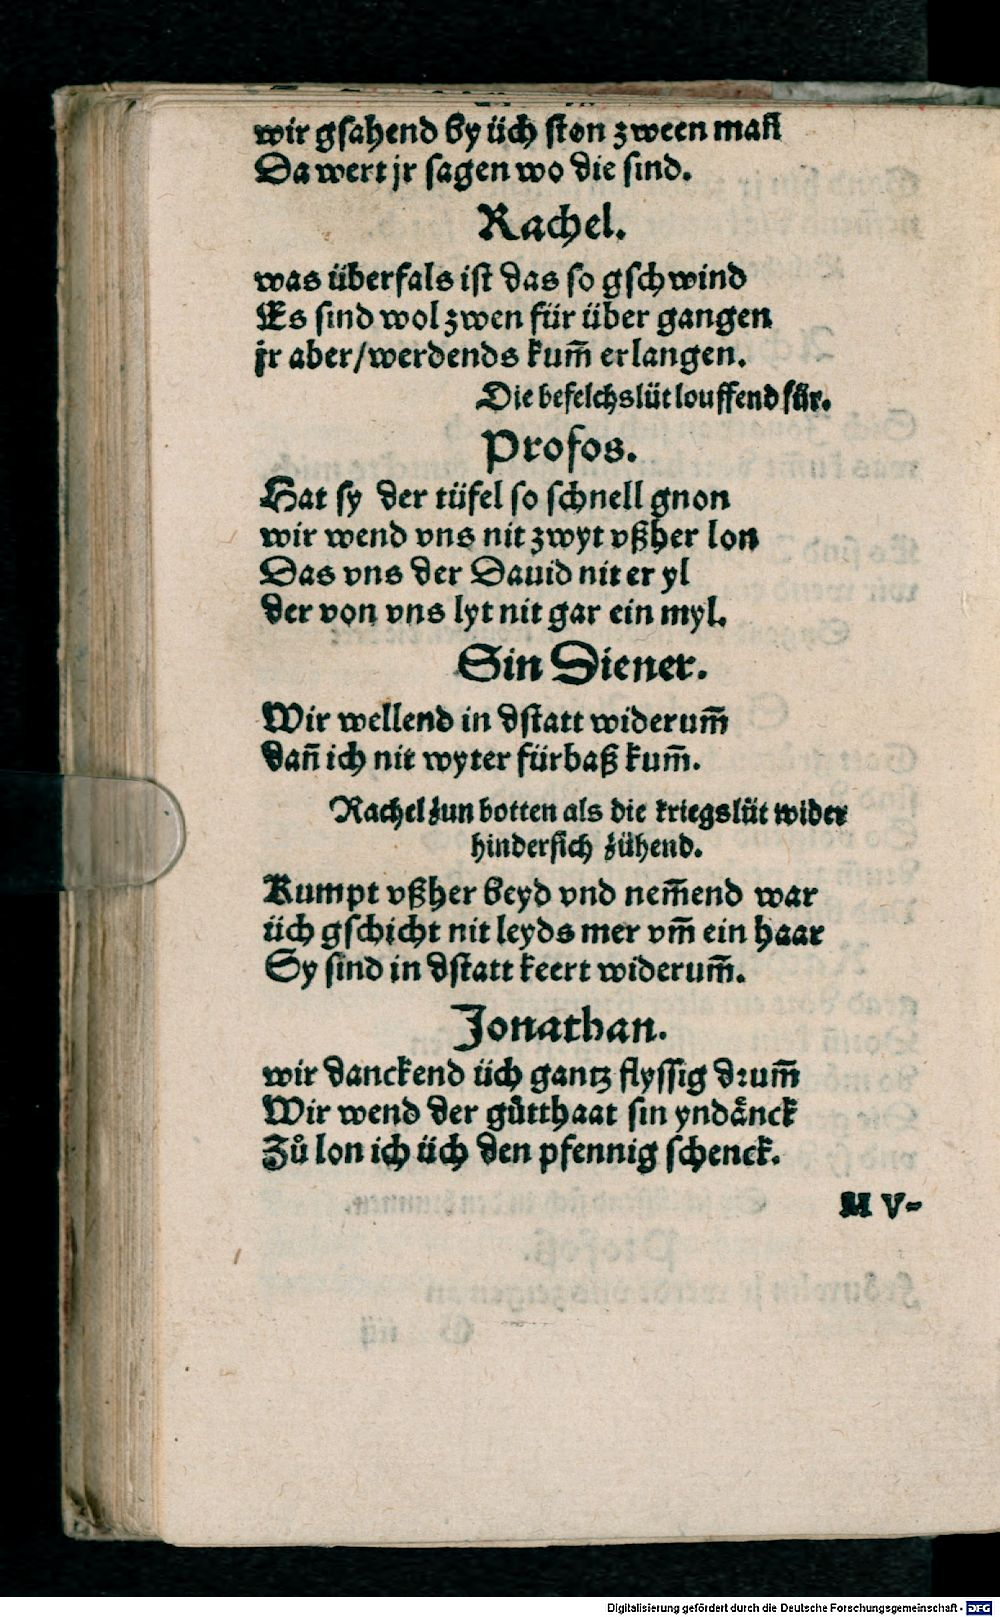 wir gsahend by üch ston zween mañ
Da wert jr sagen wo die sind.
Rachel.
was überfals ist das so gschwind
Es sind wol zwen für über gangen
jr aber/werdends kum̃ erlangen.
Die befelchslüt louffend für.
Profos.
Hat sy der tüfel so schnell gnon
wir wend vns nit zwyt vßher lon
Das vns der Dauid nit er yl
der von vns lyt nit gar ein myl.
Sin Diener.
Wir wellend in dstatt widerum̃
dañ ich nit wyter fürbaß kum̃.
Rachel zun botten als die kriegslüt wider
hindersich zühend.
Kumpt vßher beyd vnd nem̃end war
üch gschicht nit leyds mer vm̃ ein haar
Sy sind in dstatt keert widerum̃.
Jonathan.
wir danckend üch gantz flyssig drum̃
Wir wend der gůtthaat sin yndånck
Zů lon ich üch den pfennig schenck.
M V-
Digitalisierung gefördert durch die Deutsche Forschungsgemeinschaft - DFG